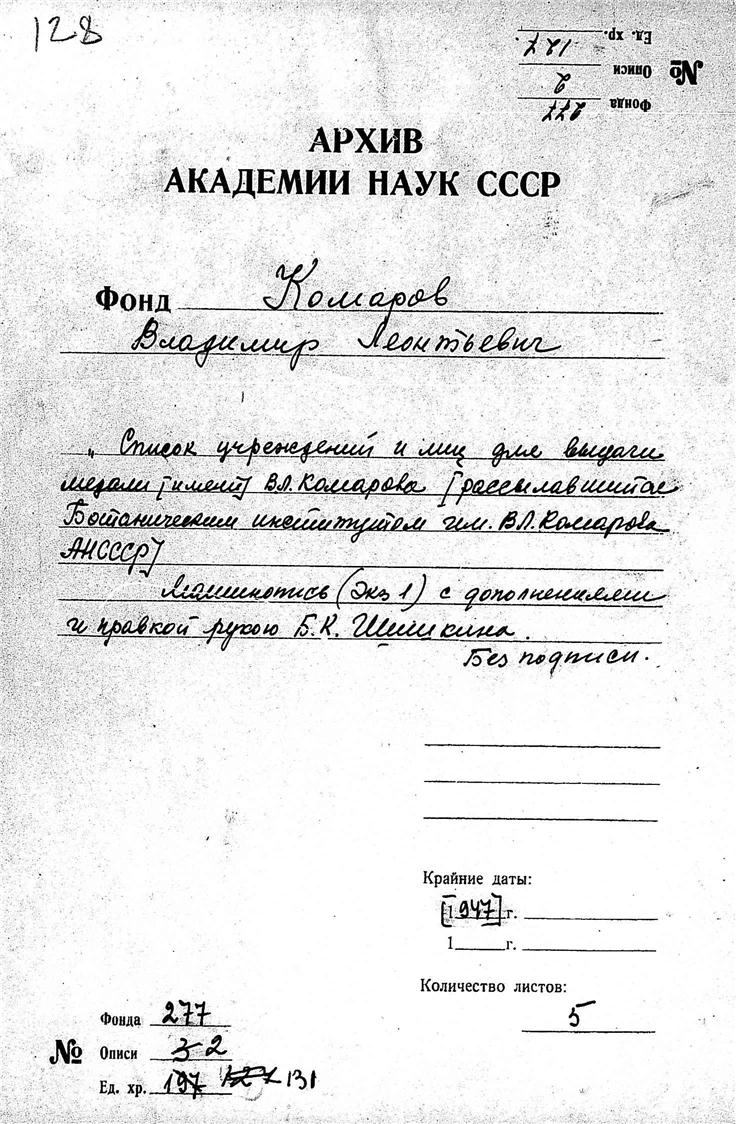 128
Ед. хр. 127
№ Описи 2
Фонда 277
АРХИВ
АКАДЕМИИ НАУК СССР
Фонд Комаров
Владимир Леонтьевич
„ Список учреждений и лиц для выдачи
медали [имени] В.Л. Комарова [рассылавшийся
Ботаническим институтом им. В.Л. Комарова
АН СССР]
Машинопись (Экз 1) с дополнениями
и правкой рукою Б.К. Шишкина.
Без подписи.
Крайние даты:
[1947] г.
1 г.
Количество листов:
5
Фонда 277
№ Описи 3 2
Ед. хр. 197 127 131